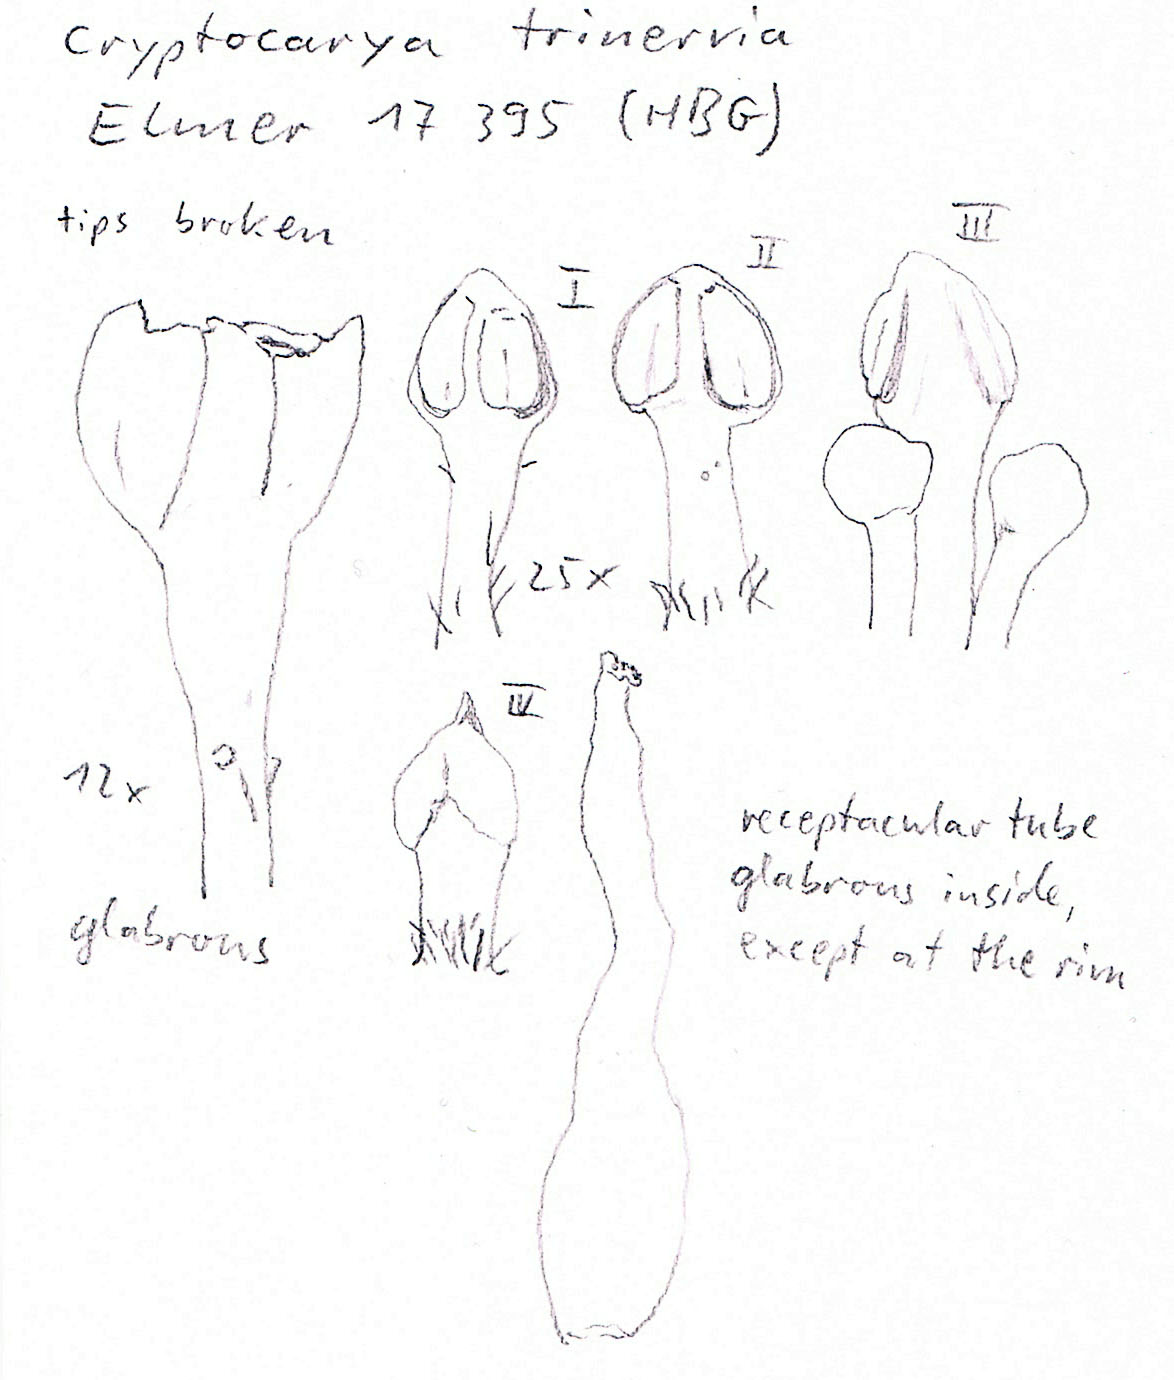 Cryptocarya trinervia
Elmer 17 395 (HBG)
tips broken
I
II
III
25x
IV
12x
glabrous
receptacular tube
glabrous inside,
except at the rim